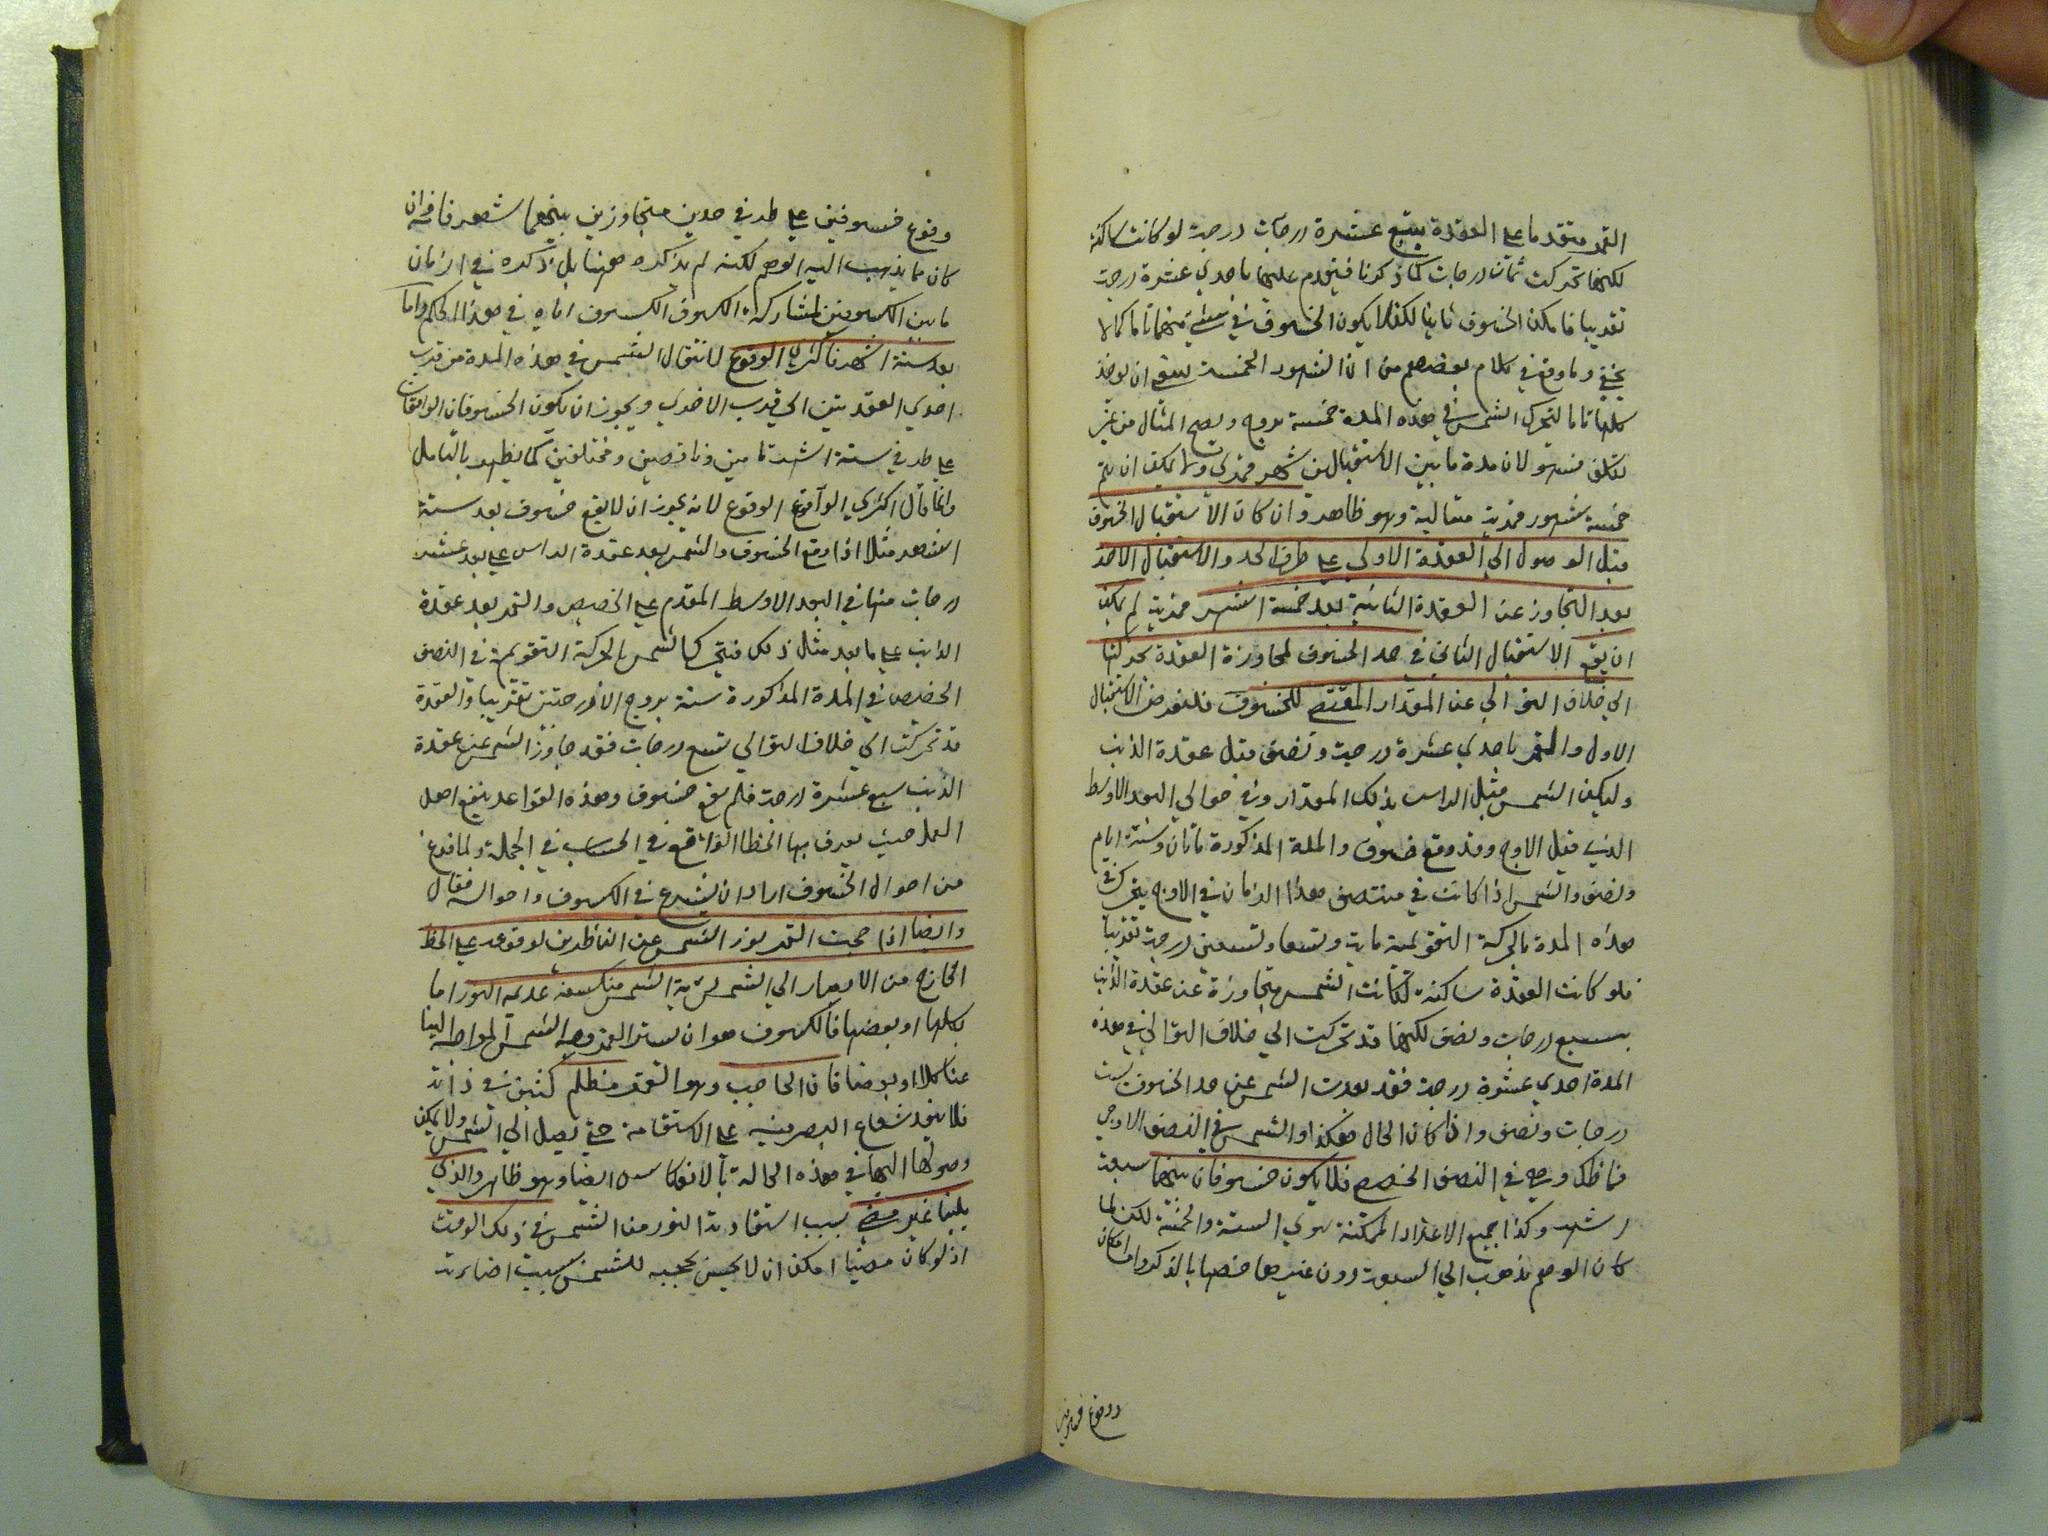 القمر متقدما على العقدة بتسع عشرة درجات درجة لو كانت ساكنة
لكنها تحركت ثمان درجات كما ذكرنا فيتقدم عليها باحدي عشرة درجة
تقريبا فامكن الخسوف ثانيا لكن لا يكون الخسوف في شئ منهما تاما كما لا
يخفي وما وقع في كلام بعضهم من ان الشهور الخمسة ينبغي ان يوخذ
كلها تاما لتحرك الشمس في هذه المدة خمسة بروج ويصح المثال من غير
تكلف فسهو لان مدة ما بين الاستقبالين شهر قمري ولا يمكن ان يتم
خمسة شهور قمرية متوالية وهو ظاهر وان كان الاستقبال الخسوف
قبل الوصول الي العقدة الاولي على طرف الحد والاستقبال الاخر
بعد التجاوز عن العقدة الثانية بعد خمسة اشهر قمرية لم يمكن
ان يقع الاستقبال الثاني في حد الخسوف لمجاوزة العقدة بحركتها
الي خلاف التوالي عن المقدار المقتضي للخسوف فلنفرض الاستقبال
الاول والقمر باحدي عشرة درجة ونصف قبل عقدة الذنب
وليكن الشمس قبل الراس بذلك المقدار وفي حوالي البعد الاوسط
الذي قبل الاوج وقد وقع خسوف والمدة المذكورة ماتان وستة ايام
ونصف والشمس اذا كانت في منتصف هذا الزمان في الاوج يتحرك في
هذه المدة بالحركة التقويمية مائة وتسعا وتسعين درجة تقريبا
فلو كانت العقدة ساكنة لكانت الشمس متجاوزة عن عقدة الذنب
بسبع درجات ونصف لكنها قد تحركت الي خلاف التوالي في هذه
المدة احدي عشرة درجة فقد بعدت الشمس عن حد الخسوف بست
درجات ونصف واذا كان الحال هكذا والشمس في النصف الاوجي
فما ظنك وهي في النصف الحضيضي فلا يكون خسوفان بينهما سبعة
اشهر وكذا جميع الاعداد الممكنة سوي الستة والخمسة لكن لما
كان الوهم يذهب الي السبعة دون غيرها خصها بالذكر واما امكان
وقوع خسوفين
وقوع خسوفين على طرفي حدين متجاوزين بينهما شهر فانه وان
كان مما يذهب اليه الوهم لكنه لم يذكره ههنا بل ذكره في ازمان
ما بين الكسوفين لمشاركة الكسوف الخسوف اياه في هذا الحكم واما
بعد ستة اشهر فاكثري الوقوع لانتقال الشمس في هذه المدة من قرب
احدي العقدتين الي قرب الاخري ويجوز ان يكون الخسوفان الواقعان
على طرفي ستة اشهر تامين وناقصين ومختلفين كما يظهر بالتامل
وانما قال اكثري الوقوع لانه يجوز ان لا يقع خسوف بعد ستة
اشهر مثلا اذا وقع الخسوف والشمس بعد عقدة الراس على بعد عشر
درجات منها في البعد الاوسط المقدم على الحضيض والقمر بعد عقدة
الذنب على ما بعد مثل ذلك فتتحرك الشمس بالحركة التقويمية في النصف
الحضيضي في المدة المذكورة ستة بروج الا درجتين تقريبا والعقدة
قد تحركت الي خلاف التوالي تسع درجات فقد جاوز الشمس عن عقدة
الذنب سبع عشرة درجة فلم يقع خسوف وهذه القواعد ينفع اهل
العمل حيث يعرف بها الخطا الواقع في الحساب في الجملة ولما فرغ
من احوال الخسوف اراد ان يشرع في الكسوف واحواله فقال
وايضا اذا حجب القمر نور الشمس عن الناظرين لوقوعه على الخط
الخارج من الابصار الي الشمس يري الشمس منكسفة عديمة النور اما
بكلها او بعضها فالكسوف هو ان يستر القمر وجه الشمس المواجه الينا
عنا كلا او بعضا فان الحاجب وهو القمر مظلم كثيف في ذاته
فلا ينفذ شعاع البصر فيه على الاستقامة حتي يصل الي الشمس ولا يمكن
وصولها اليها في هذه الحالة بالانعكاس ايضا وهو ظاهر والذي
يلينا غير مضئ بسبب استفادته النور من الشمس في ذلك الوقت
اذ لو كان مضيئا امكن ان لا يحس بحجبه للشمس بسبب اضاءته